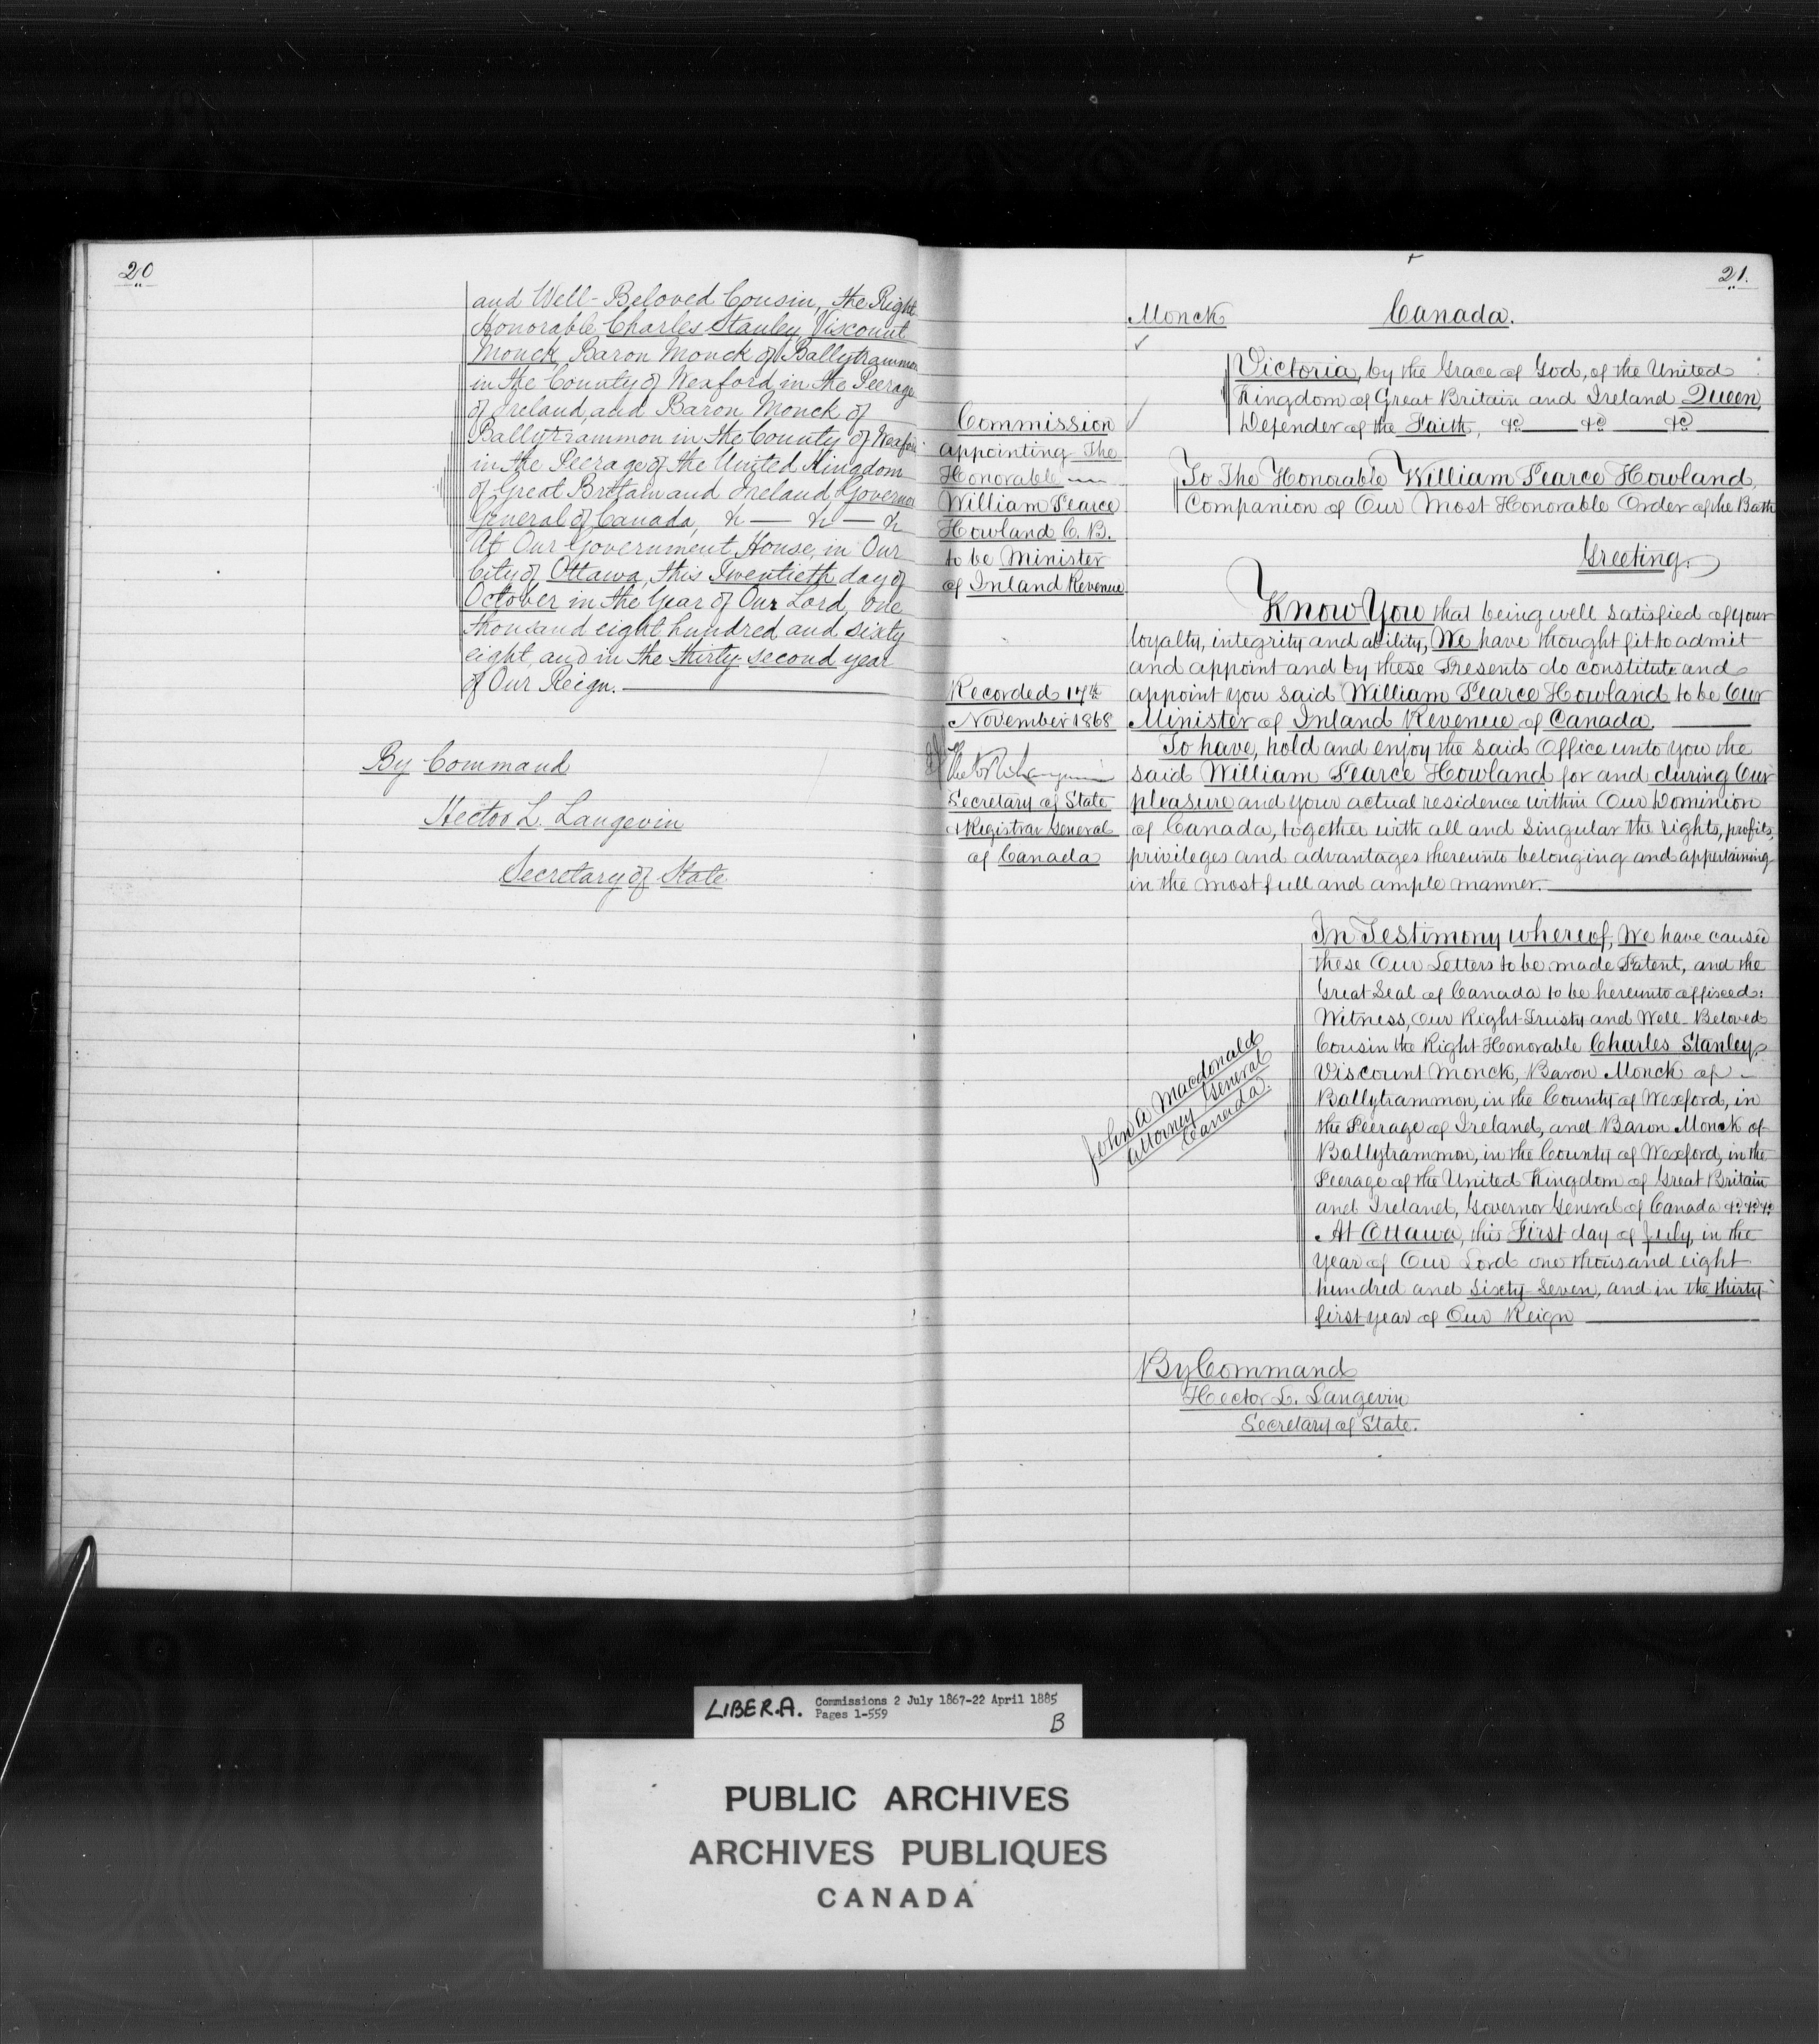 20
and Well-Beloved Cousin, the Right
Honorable Charles Stanley Viscount
Monck, Baron Monck of Ballytrammon
in the County of Wexford, in the Peerage
of Ireland, and Baron Monck of
Ballytrammon in the County of Wexford
in the Peerage of the United Kingdom
of Great Britain and Ireland, Governor
General of Canada, &c — &c — &c
At Our Government House, in Our
City of Ottawa, this Twentieth day of
October in the Year of Our Lord, one
thousand eight hundred and sixty
eight, and in the thirty-second year
of Our Reign.
By Command
Hector L. Langevin
Secretary of State
21.
Monck
Canada.
Victoria, by the Grace of God, of the United
Kingdom of Great Britain and Ireland Queen,
Defender of the Faith, &c &c &c
Commission
appointing The
Honorable
William Pearce
Howland C.B.
to be Minister
of Inland Revenue
To The Honorable William Pearce Howland,
Companion of Our Most Honorable Order of the Bath
Greeting.
Know You that being well satisfied of your
loyalty, integrity and ability, We have thought fit to admit
and appoint and by these Presents do constitute and
appoint you said William Pearce Howland to be Our
Minister of Inland Revenue of Canada.
Recorded 17th
November 1868
Secretary of State
& Registrar General
of Canada
To have, hold and enjoy the said Office unto you the
said William Pearce Howland for and during Our
pleasure and your actual residence within Our Dominion
of Canada, together with all and singular the rights, profits,
privileges and advantages thereunto belonging and appertaining
in the most full and ample manner.
In Testimony whereof, We have caused
these Our Letters to be made Patent, and the
Great Seal of Canada to be hereunto affixed:
Witness, Our Right Trusty and Well-Beloved
Cousin the Right Honorable Charles Stanley,
Viscount Monck, Baron Monck of
Ballytrammon, in the County of Wexford, in
the Peerage of Ireland, and Baron Monck of
Ballytrammon, in the County of Wexford, in the
Peerage of the United Kingdom of Great Britain
and Ireland, Governor General of Canada &c &c &c
At Ottawa, this First day of July, in the
year of Our Lord one thousand eight
hundred and Sixty Seven, and in the thirty-
first year of Our Reign
John A Macdonald
Attorney General
Canada.
By Command
Hector L. Langevin
Secretary of State.
LIBER.A. Commissions 2 July 1867-22 April 1885
Pages 1-559
B
PUBLIC ARCHIVES
ARCHIVES PUBLIQUES
CANADA